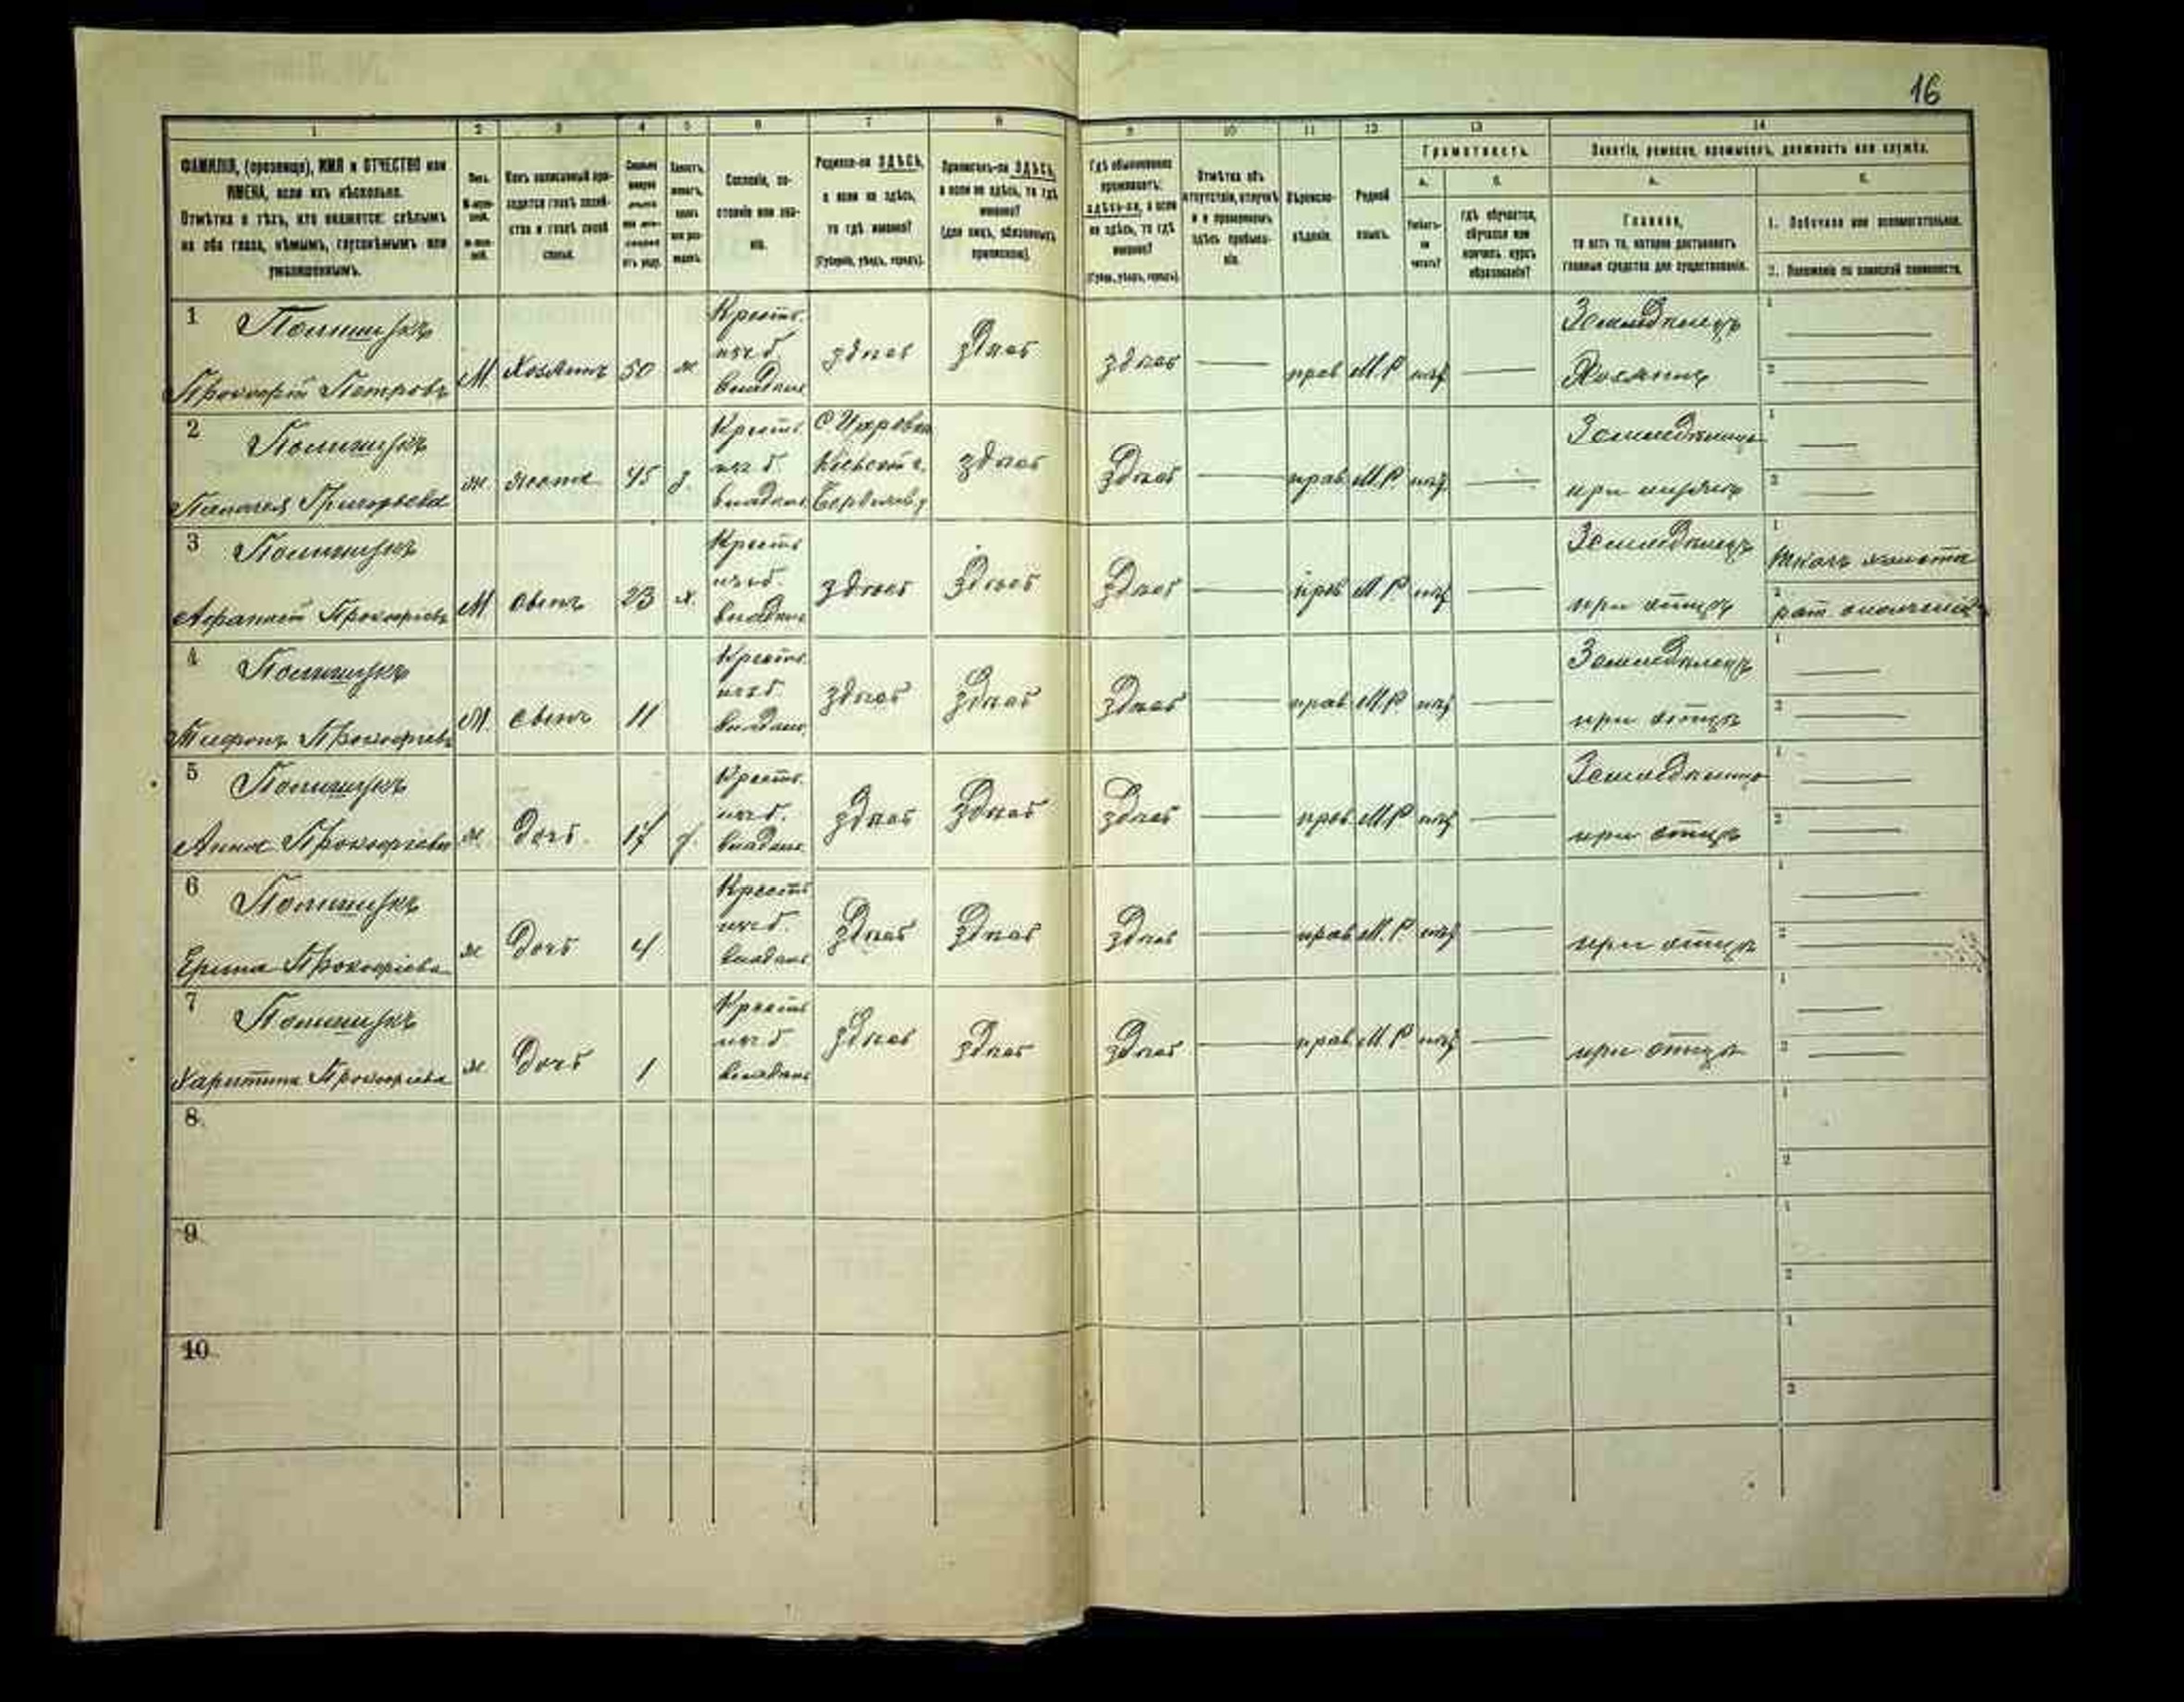 16
1 2 3 4 5 6 7 8 9 10 11 12 13 14
ФАМИЛІЯ, (прозвище), ИМЯ и ОТЧЕСТВО или
ИМЕНА, если ихъ нѣсколько.
Отмѣтка о тѣхъ, кто окажется: слѣпымъ
на оба глаза, нѣмымъ, глухонѣмымъ или
умалишеннымъ.
Полъ.
М-муж-
ской.
ж-жен-
скій.
Какъ записанный при-
ходится главѣ хозяй-
ства и главѣ своей
семьи.
Сословіе, со-
стояніе или зва-
ніе.
Родился-ли ЗДѢСЬ,
а если не здѣсь,
то гдѣ именно?
(Губернія, уѣздъ, городъ).
Приписанъ-ли ЗДѢСЬ,
а если не здѣсь, то гдѣ
именно?
(для лицъ, обязанныхъ
припискою).
Гдѣ обыкновенно
проживаетъ:
здѣсь-ли, а если
не здѣсь, то гдѣ
именно?
(Губерн., уѣздъ, городъ).
Отмѣтка объ
отсутствіи, отлучкѣ
и о временномъ
здѣсь пребыва-
ніи.
Вѣроиспо-
вѣданіе.
Родной
языкъ.
Грамотность.
а. б.
Умѣетъ-
ли
читать?
гдѣ обучается,
обучался или
кончилъ курсъ
образованія?
Занятіе, ремесло, промыселъ, должность или служба.
а. б.
Главное,
то есть то, которое доставляетъ
главныя средства для существованія.
1. Побочное или вспомогательное.
2. Положеніе по воинской повинности.
1 Полищукъ
Прокофій Петровъ М Хозяинъ 50 ж Крестья. изъ б. владѣльч здѣсь здѣсь здѣсь прав М.Р нѣт Земледѣлецъ Хозяинъ
2 Полищукъ
Пелагея Григорьева ж жена 45 з. Крестья. изъ б. владѣльч здѣсь здѣсь прав М.Р. нѣт Земледѣлица при мужѣ
3 Полищукъ
Афанасій Прокофіевъ М сынъ 23 х. Крестья изъ б. владѣльч здѣсь здѣсь здѣсь прав М.Р нѣт Земледѣлецъ при отцѣ
Ткачъ холста
рат. ополченія
4 Полищукъ
Прокофіевъ М. сынъ 11 Крестья. изъ б. владѣльч здѣсь здѣсь здѣсь прав М.Р. нѣт Земледѣлецъ при отцѣ
5 Полищукъ
Анна Прокофіева ж. дочь. 17 Крестья. изъ б. владѣльч здѣсь здѣсь здѣсь прав М.Р нѣт Земледѣлица при отцѣ
6 Полищукъ
Ерина Прокофіева ж дочь 4 Крестья изъ б. владѣльч здѣсь здѣсь здѣсь прав М.Р. нѣт при отцѣ
7 Полищукъ
Харитина Прокофіева ж дочь 1 Крестья изъ б. владѣльч здѣсь здѣсь здѣсь прав М.Р нѣт при отцѣ
8.
9.
10.